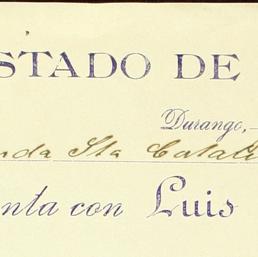 STADO DE
Durango,
nda Sta Catali
nta con Luis